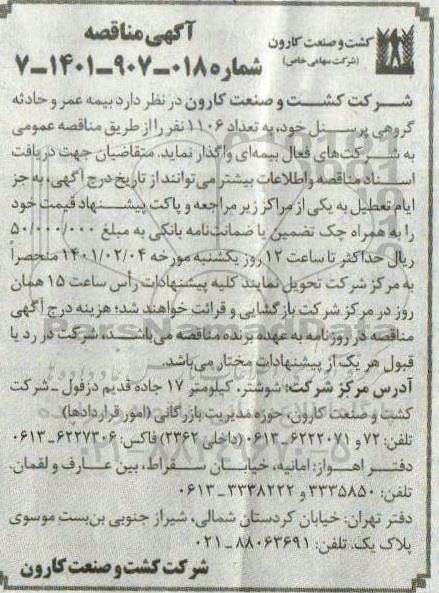 آگهی مناقصه
کشت و صنعت کارون
(شرکت سهامی خاص)
شماره ۰۱۸۵-۹۰۷-۱۴۰۱-۷
شرکت کشت و صنعت کارون در نظر دارد بیمه عمر و حادثه
گروهی پرسنل خود، به تعداد ۱۱۰۶ نفر را از طریق مناقصه عمومی
به شرکت‌های فعال بیمه‌ای واگذار نماید. متقاضیان جهت دریافت
اسناد مناقصه و اطلاعات بیشتر می‌توانند از تاریخ درج آگهی، به جز
ایام تعطیل به یکی از مراکز زیر مراجعه و پاکت پیشنهاد قیمت خود
را به همراه چک تضمین یا ضمانت‌نامه بانکی به مبلغ ۵۰/۰۰۰/۰۰۰
ریال حداکثر تا ساعت ۱۲ روز یکشنبه مورخه ۱۴۰۱/۰۲/۰۴ منحصراً
به مرکز شرکت تحویل نمایند کلیه پیشنهادات رأس ساعت ۱۵ همان
روز در مرکز شرکت بازگشایی و قرائت خواهند شد؛ هزینه درج آگهی
مناقصه در روزنامه به عهده برنده مناقصه می‌باشد، شرکت در رد یا
قبول هر یک از پیشنهادات مختار می‌باشد.
آدرس مرکز شرکت: شوشتر، کیلومتر ۱۷ جاده قدیم دزفول - شرکت
کشت و صنعت کارون، حوزه مدیریت بازرگانی (امور قراردادها)
تلفن: ۷۲ و ۶۲۲۲۰۷۱-۰۶۱۳ (داخلی ۲۳۶۲) فاکس: ۶۲۲۷۳۰۶-۰۶۱۳
دفتر اهواز: امانیه، خیابان سقراط، بین عارف و لقمان.
تلفن: ۳۳۳۵۸۵۰ و ۳۳۳۸۲۲۲-۰۶۱۳
دفتر تهران: خیابان کردستان شمالی، شیراز جنوبی بن‌بست موسوی
پلاک یک. تلفن: ۸۸۰۶۳۶۹۱-۰۲۱
شرکت کشت و صنعت کارون
ParsNamadData